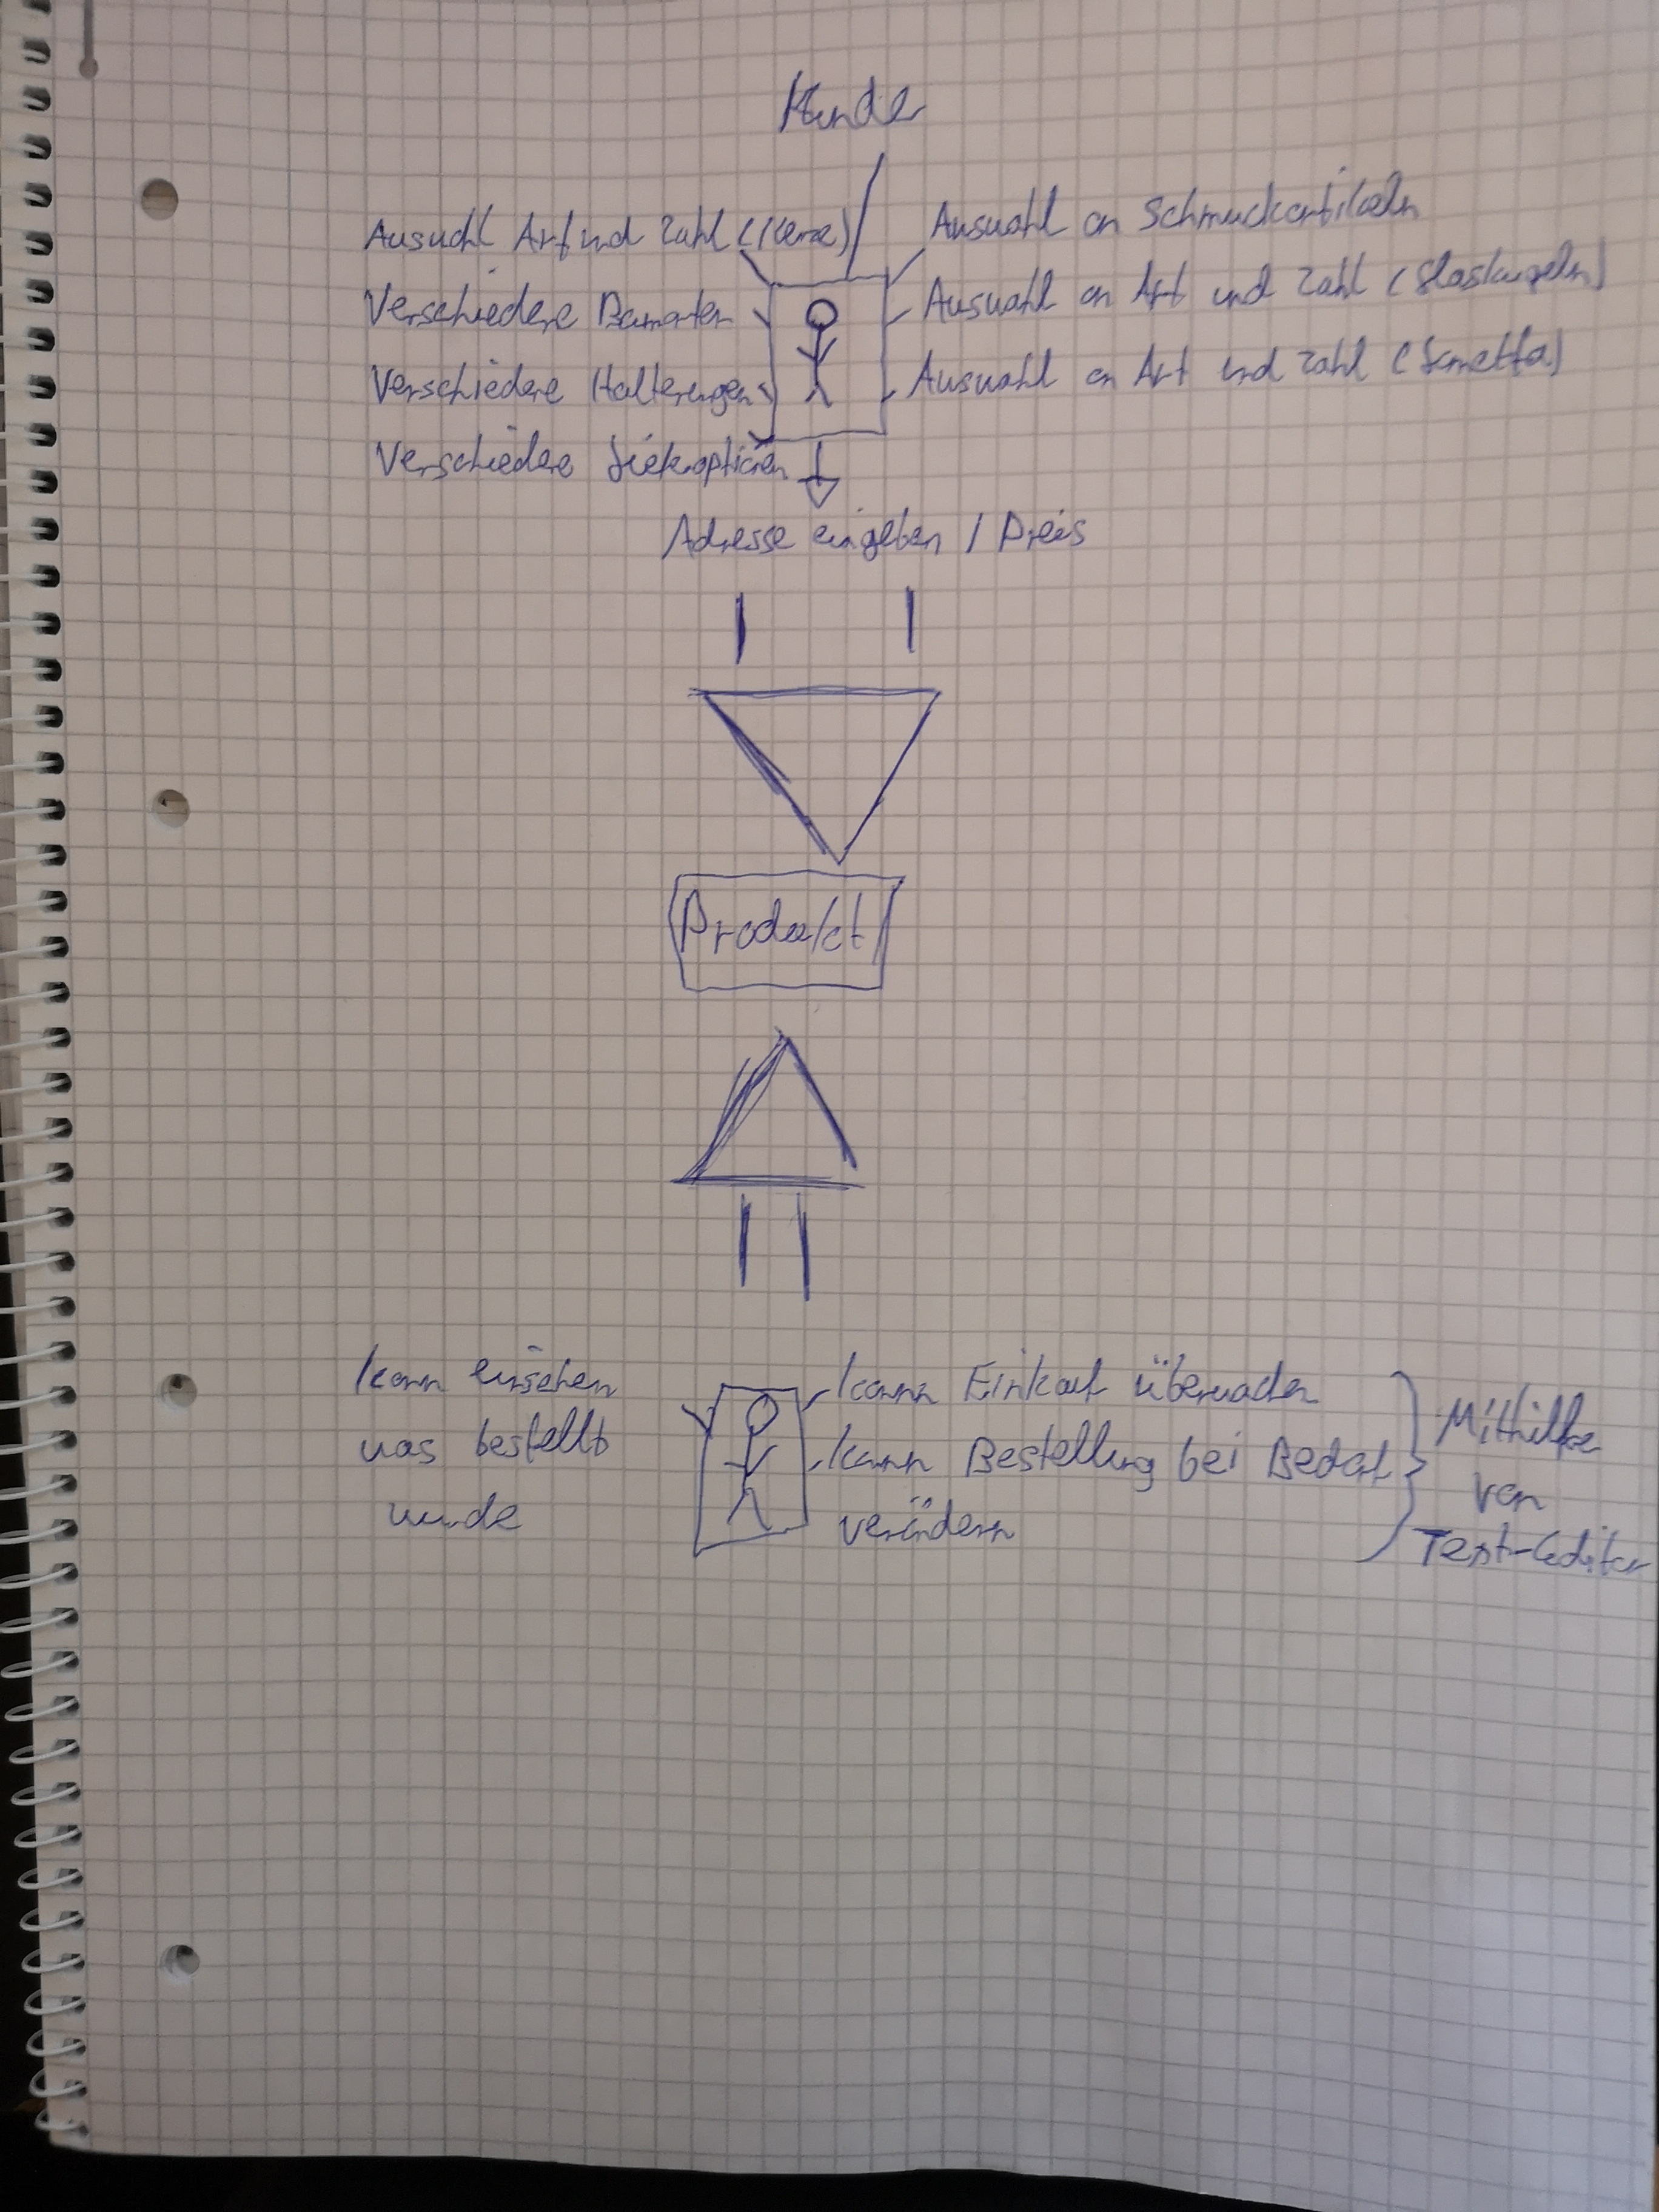 Kunde
Auswahl Art und Zahl (Kerze)
Verschiedere Baumarten
Verschiedere Halterungen
Verschiedere Lieferoptionen
Auswahl an Schmuckartikeln
Auswahl an Art und Zahl (Glaskugeln)
Auswahl an Art und Zahl (Lametta)
Adresse eingeben / Preis
Produkt
kann einsehen
was bestellt
wurde
kann Einkauf überwachen
kann Bestellung bei Bedarf
verändern
Mithilfe
von
Text-Editor